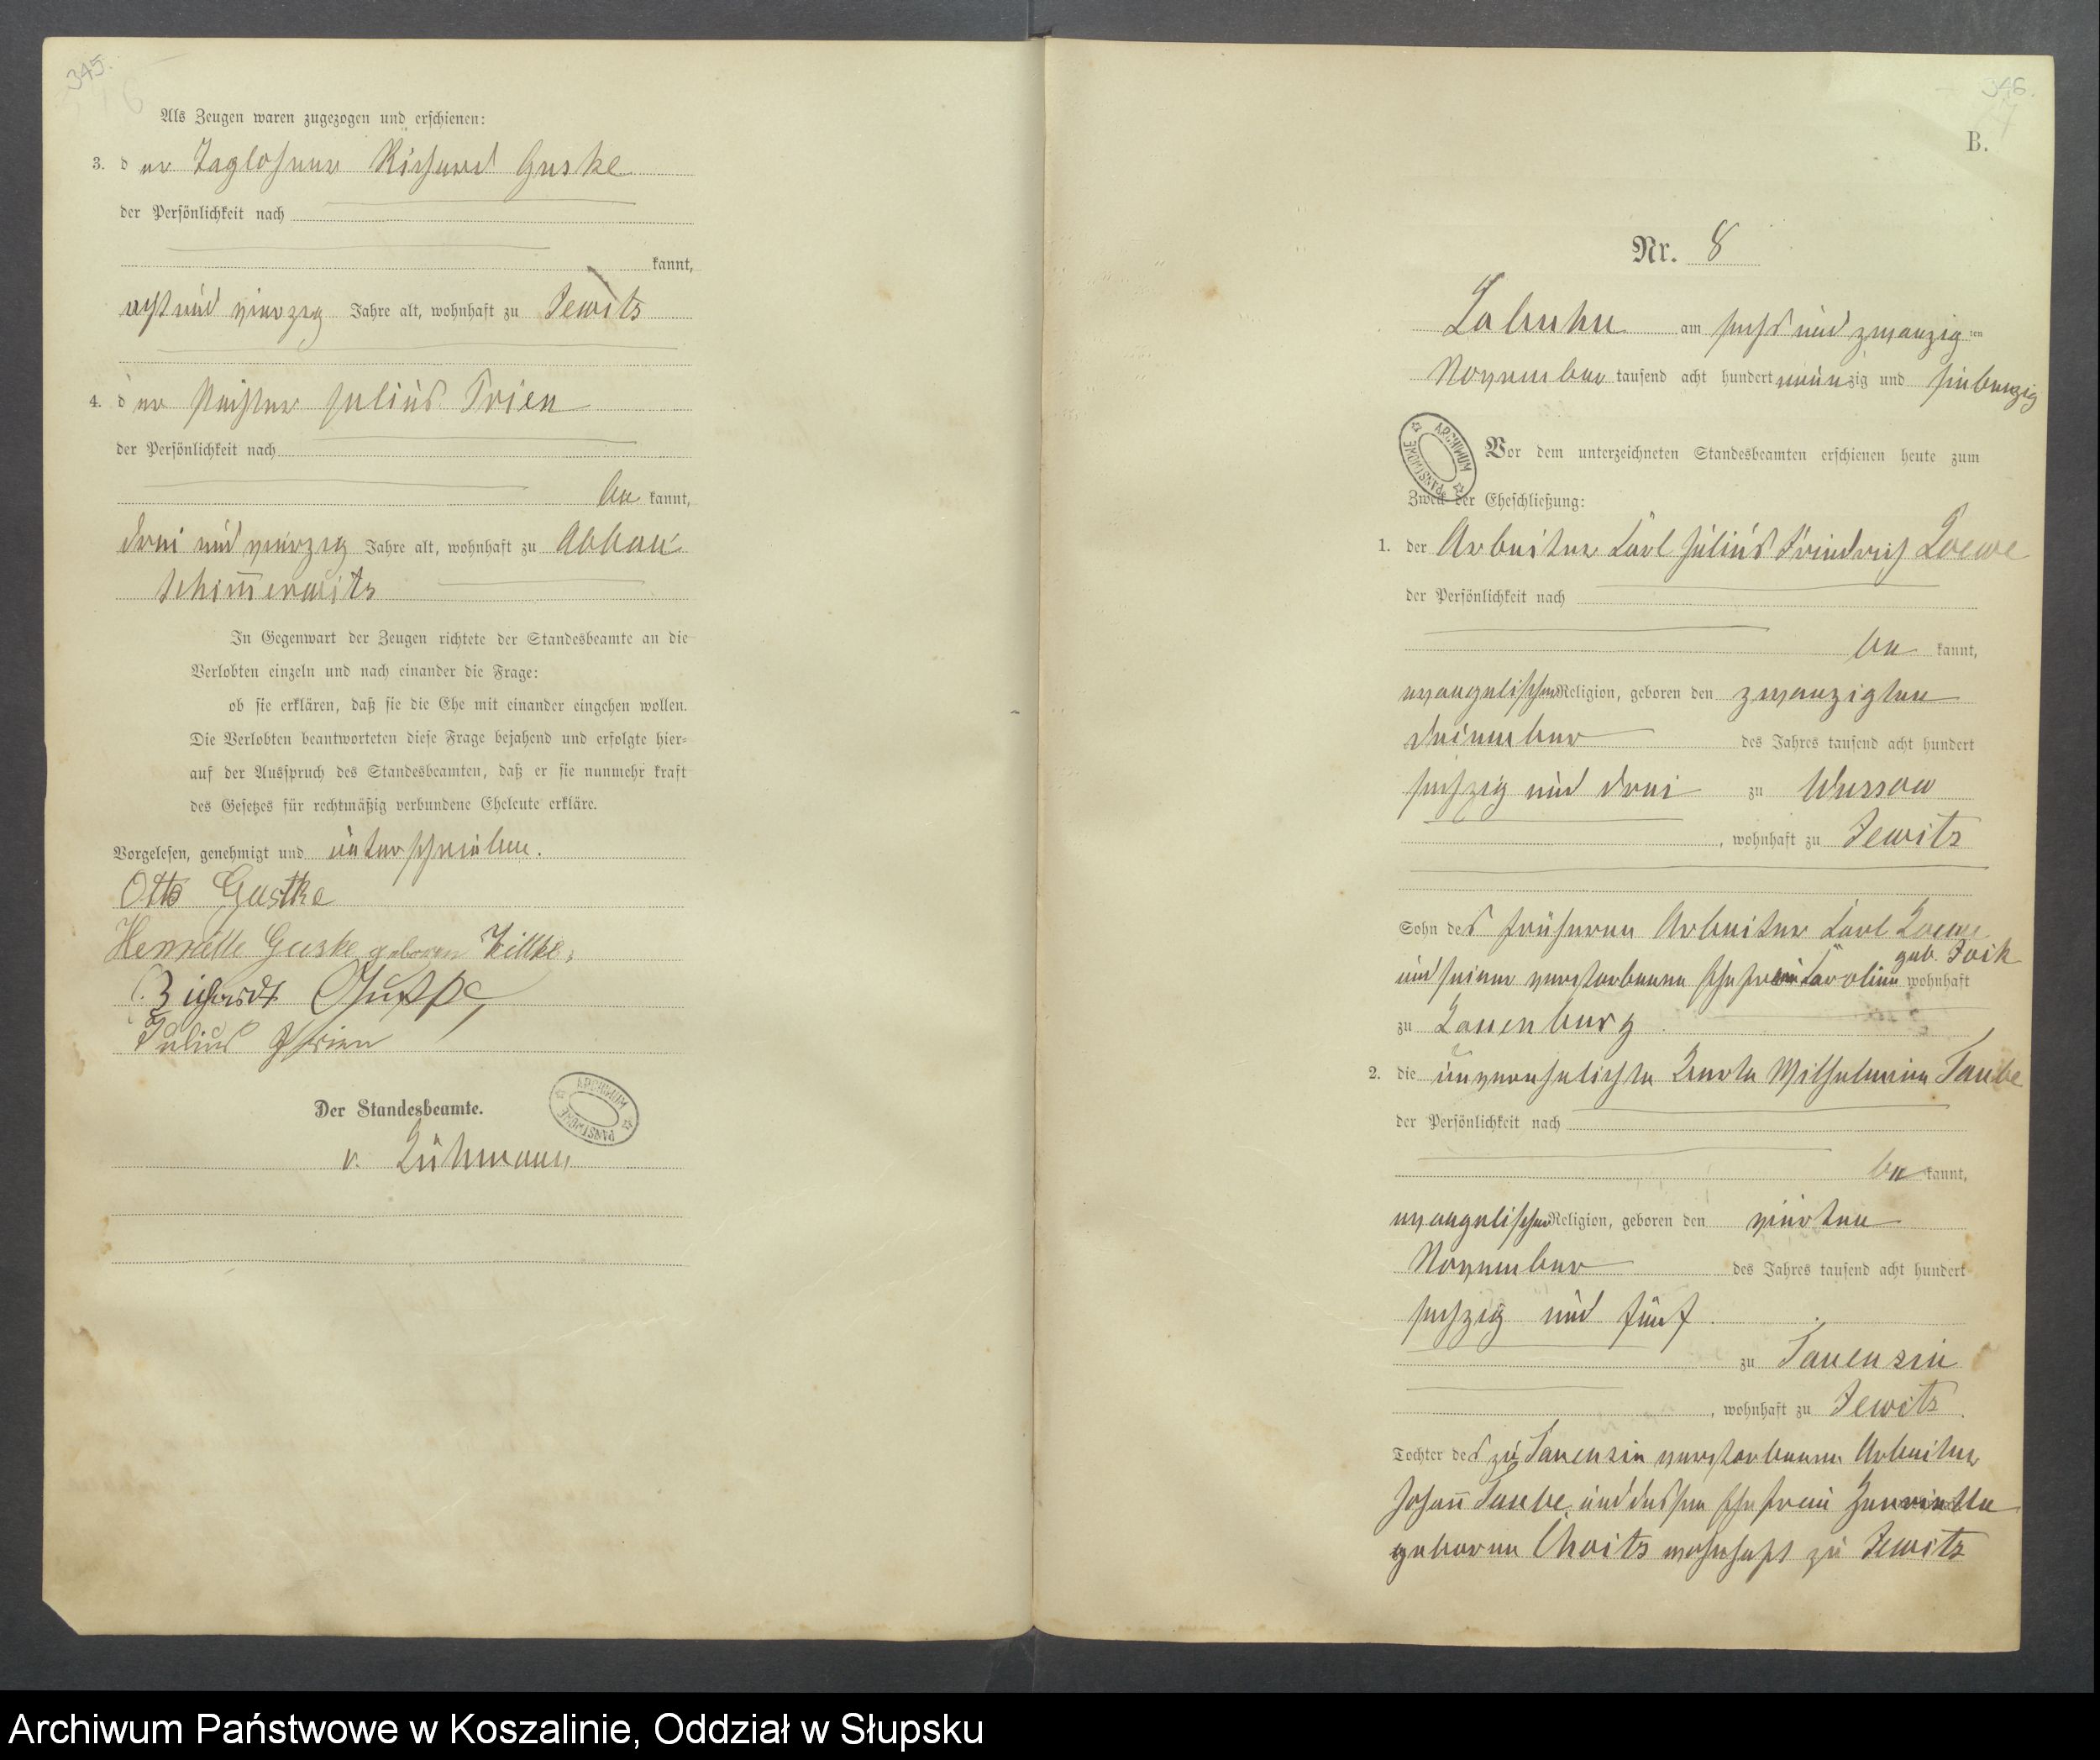 345.
Als Zeugen waren zugezogen und erschienen:
3. der Taglöhner Richard Guske
der Persönlichkeit nach
kannt,
acht und vierzig Jahre alt, wohnhaft zu Jewitz
4. der Julius Prien
der Persönlichkeit nach
be kannt,
drei und vierzig Jahre alt, wohnhaft zu Abbau
Schimmerwitz
In Gegenwart der Zeugen richtete der Standesbeamte an die
Verlobten einzeln und nach einander die Frage:
ob sie erklären, daß sie die Ehe mit einander eingehen wollen.
Die Verlobten beantworteten diese Frage bejahend und erfolgte hier-
auf der Ausspruch des Standesbeamten, daß er sie nunmehr kraft
des Gesetzes für rechtmäßig verbundene Eheleute erkläre.
Vorgelesen, genehmigt und unterschrieben.
Otto Guske
Guske geboren
Julius Prien
Der Standesbeamte.
v. Lühmann
ARCHIWUM PAŃSTWOWE
346.
B.
Nr. 8
Labuhn am sechs und zwanzig ten
November tausend acht hundert neunzig und siebenzig
ARCHIWUM PAŃSTWOWE
Vor dem unterzeichneten Standesbeamten erschienen heute zum
Zweck der Eheschließung:
1. der Arbeiter Carl Julius Friedrich Loewe
der Persönlichkeit nach
be kannt,
evangelischer Religion, geboren den zwanzigten
Dezember des Jahres tausend acht hundert
sechzig und drei zu Wussow
, wohnhaft zu Jewitz
Sohn des früheren Arbeiter Carl Loewe
geb. Joik
und seiner verstorbenen Ehefrau Caroline wohnhaft
zu Lauenburg
2. die unverehelichte Berta Wilhelmine Taube
der Persönlichkeit nach
be kannt,
evangelischer Religion, geboren den vierten
November des Jahres tausend acht hundert
sechzig und fünf
zu Tauenzin
, wohnhaft zu Jewitz
Tochter des zu Tauenzin verstorbenen Arbeiter
Johann Taube und dessen Ehefrau Henriette
geborene Choitz wohnhaft zu Jewitz
Archiwum Państwowe w Koszalinie, Oddział w Słupsku